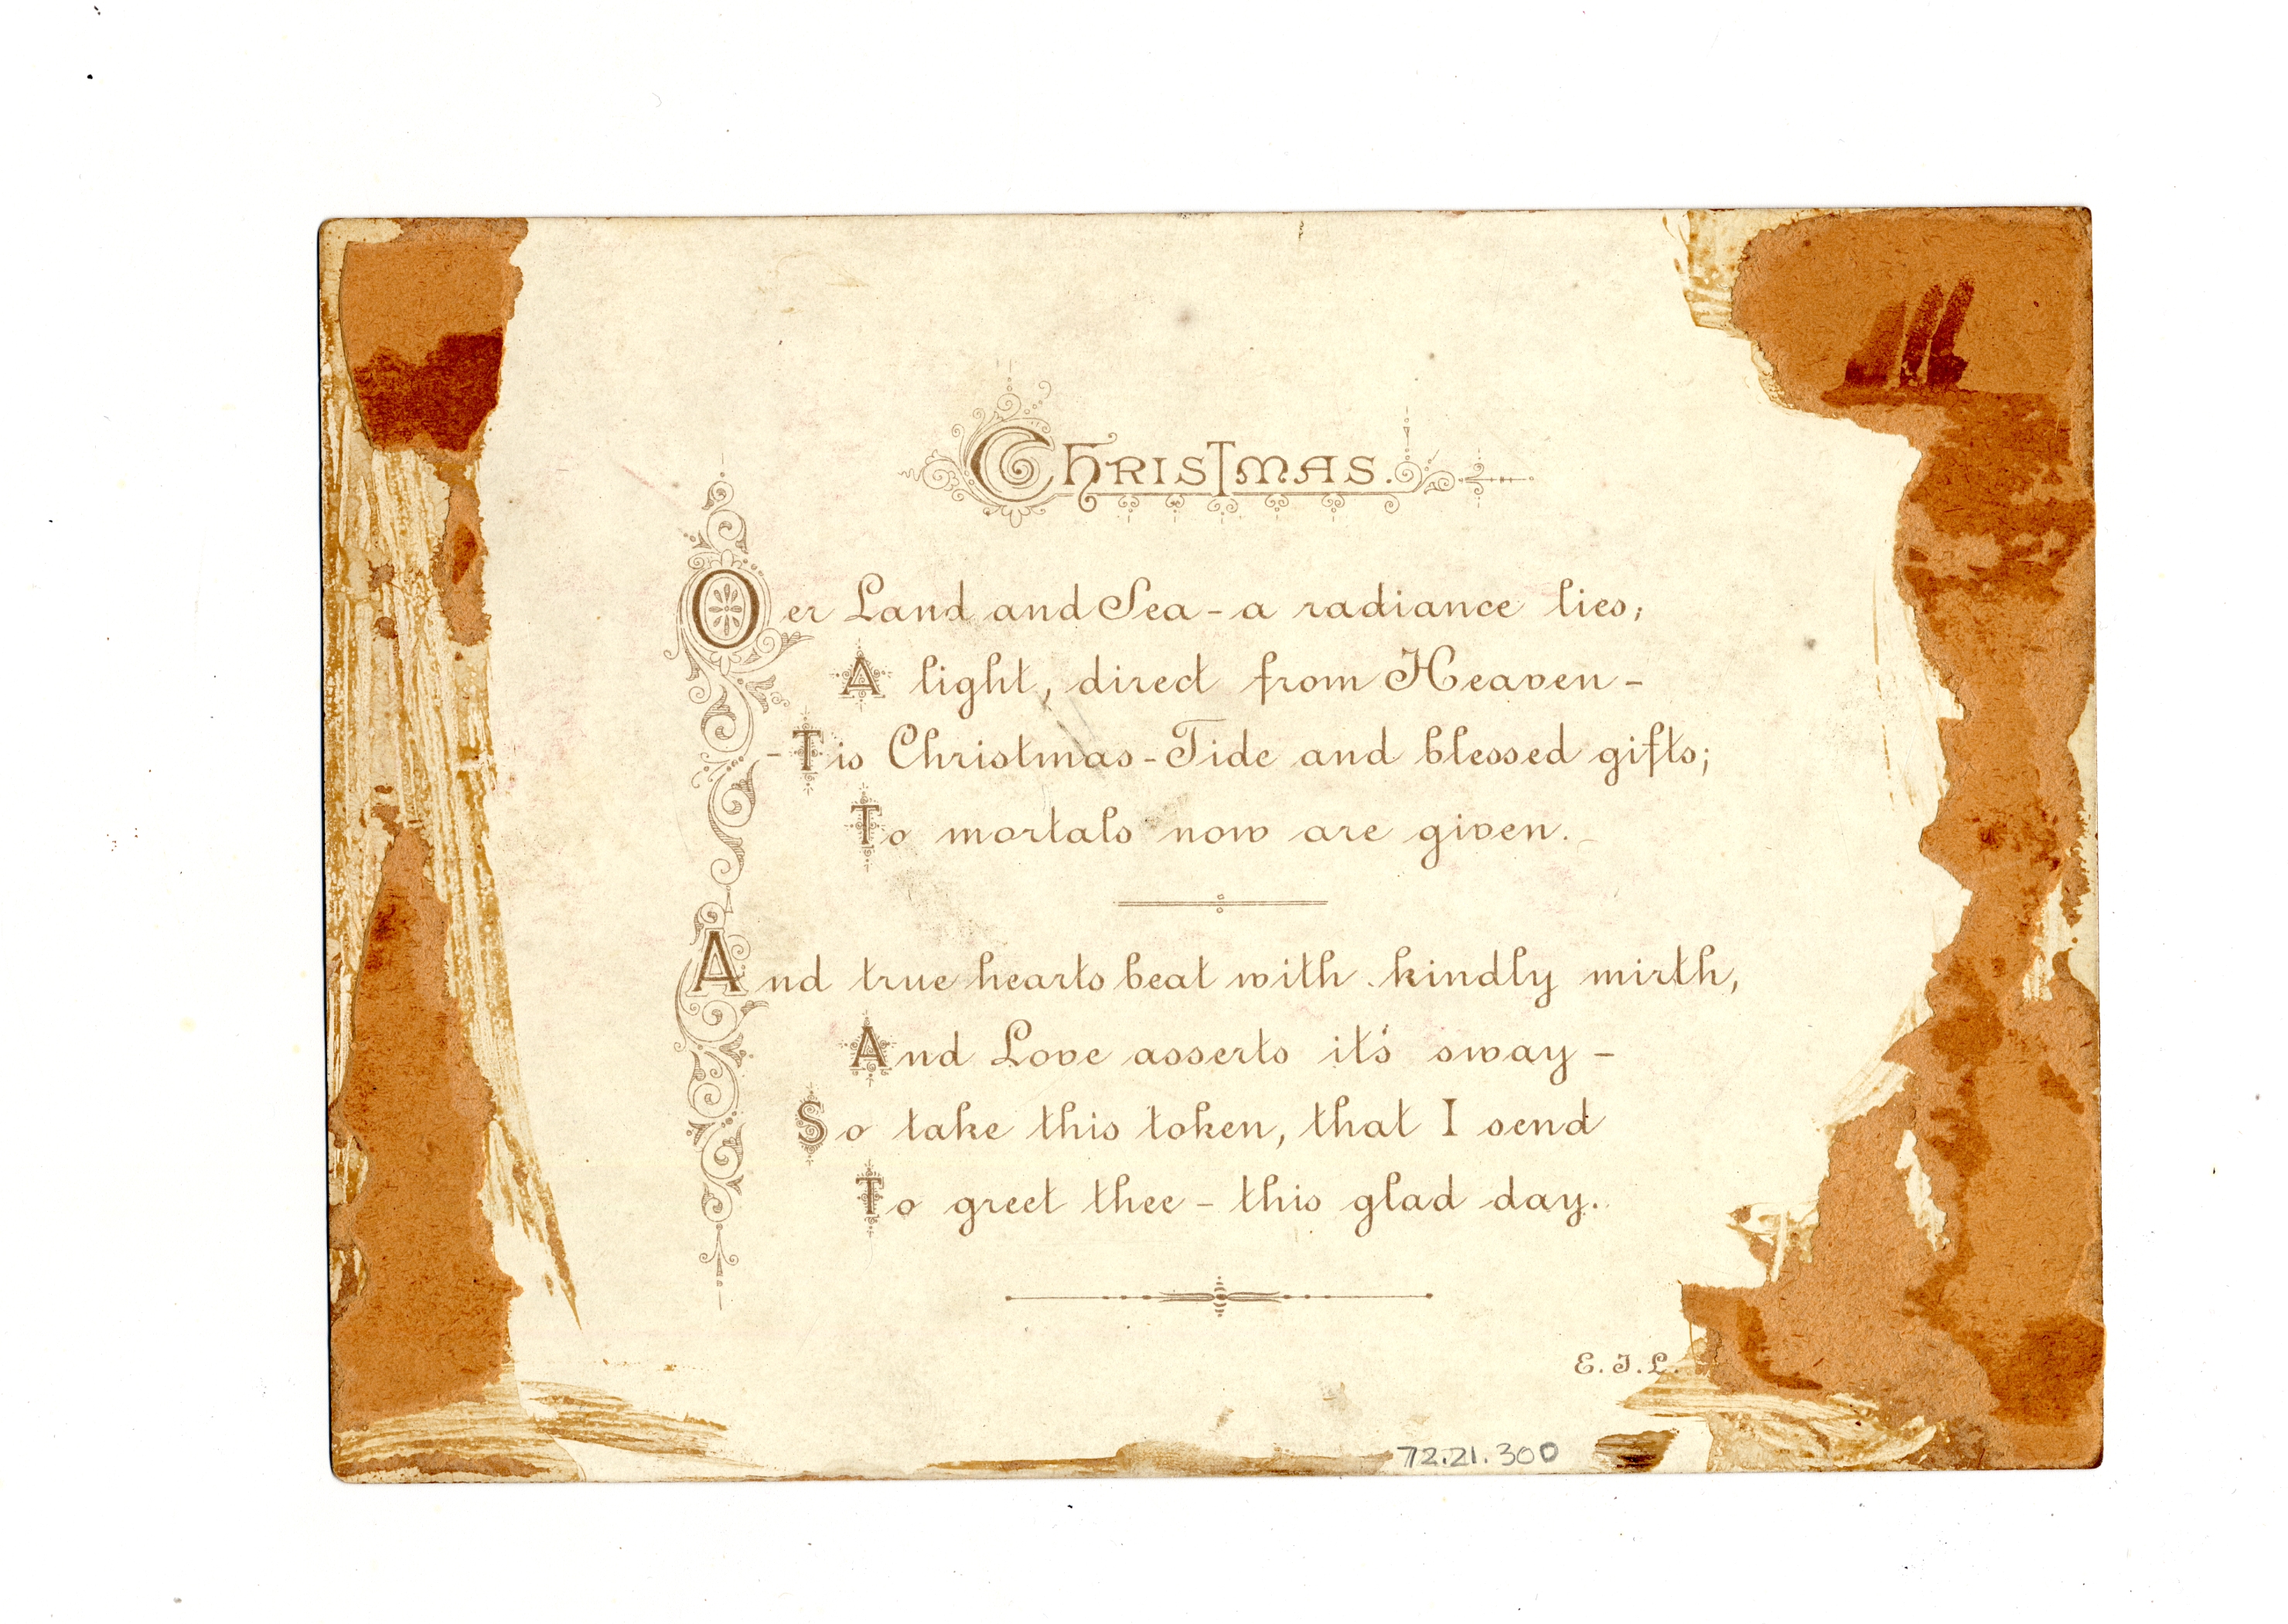 CHRISTMAS.
Oer Land and Sea - a radiance lies;
A light, direct from Heaven -
- Tis Christmas - Tide and blessed gifts;
To mortals now are given.
And true hearts beat with kindly mirth,
And Love asserts it's sway -
So take this token, that I send
To greet thee - this glad day.
E. J. L.
72.21.300